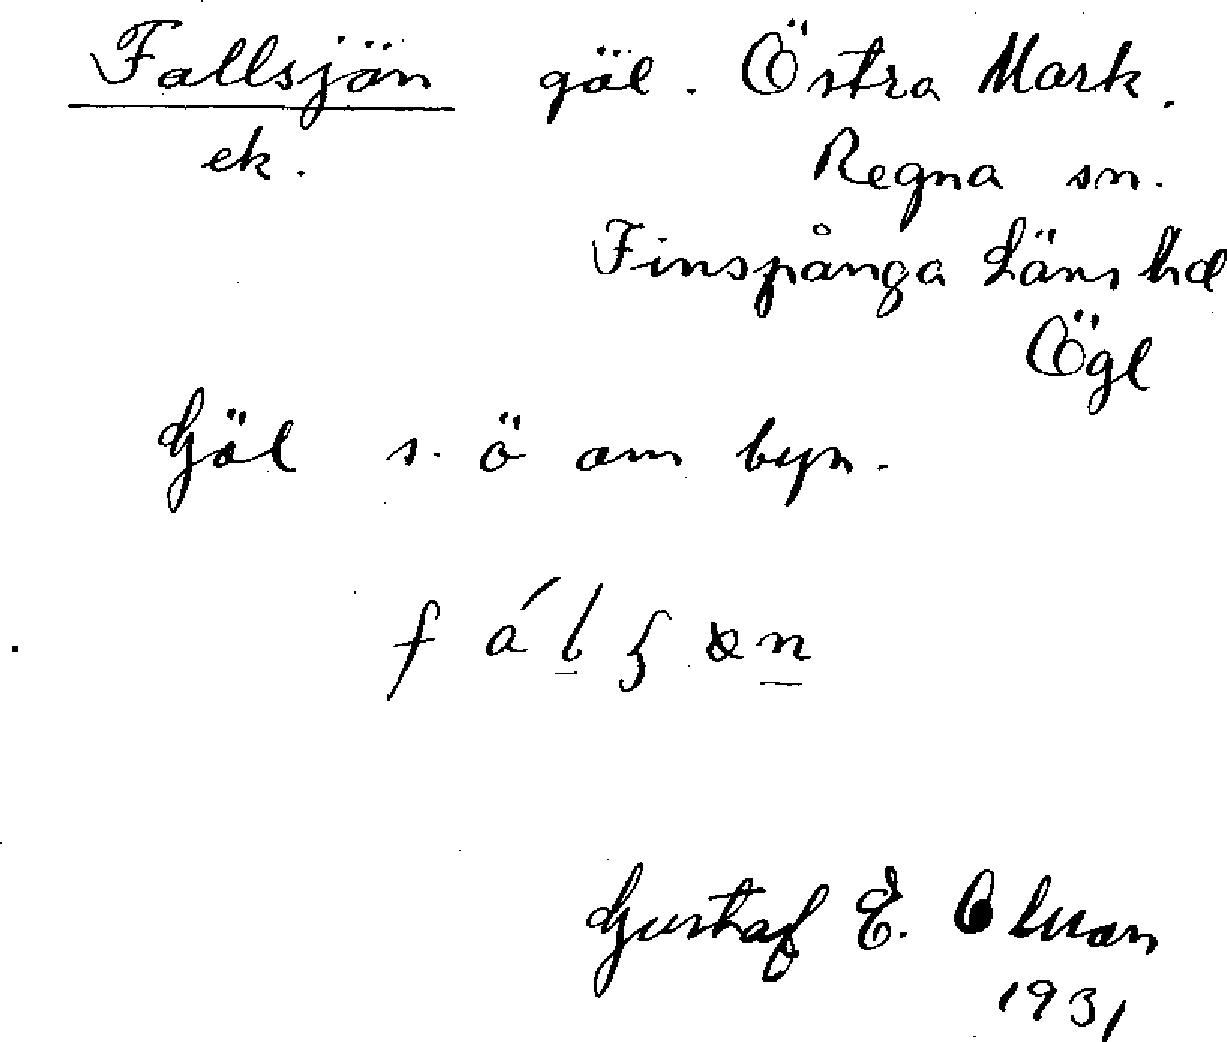 Fallsjön göl. Östra Mark.
ek. Regna sn.
Finspånga Läns hd
Ögl
Göl s. ö om byn.
Gustaf E. Olsson
1931